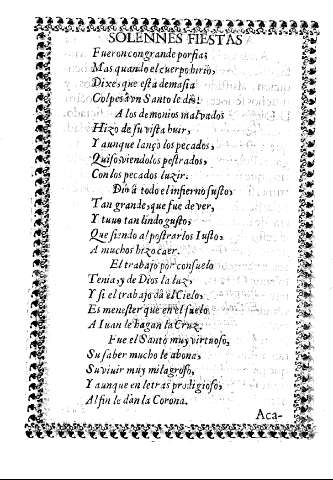 SOLENNES FIESTAS
Fueron con grande porfia;
Mas quando el cuerpo hirio,
Dixe, que esta demasia
Colpes a vn Santo le dio!
A los demonios malvados
Hizo de su vista huir,
Y aunque lançò los pecados,
Quiso viendolos postrados,
Con los pecados luzir.
Dio â todo el infierno susto,
Tan grande, que fue de ver,
Y tuuo tan lindo gusto,
Que siendo al postrarlos Iusto,
A muchos hizo caer.
El trabajo por consuelo
Tenia, y de Dios la luz,
Y si el trabajo dâ el Cielo,
Es menester que en el suelo
A Iuan le hagan la Cruz.
Fue el Santo muy virtuoso,
Su saber mucho le abona,
Su viuir muy milagroso,
Y aunque en letras prodigioso,
Al fin le dàn la Corona.
Aca-